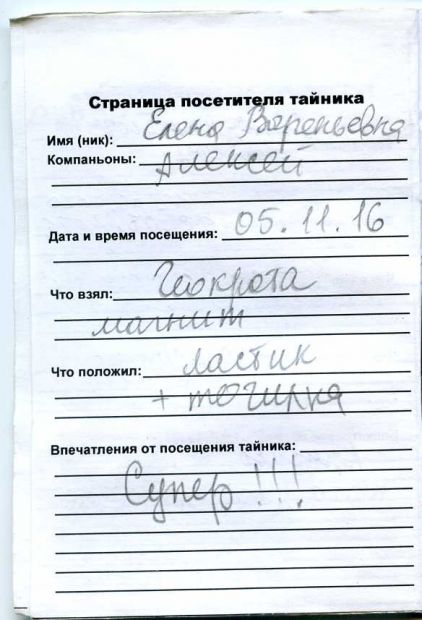 Страница посетителя тайника
Имя (ник): Елена Вареньевна
Компаньоны: Алексей
Дата и время посещения: 05.11.16
Что взял: Геокрота
магнит
Что положил: ластик
+ точилка
Впечатления от посещения тайника:
Супер!!!